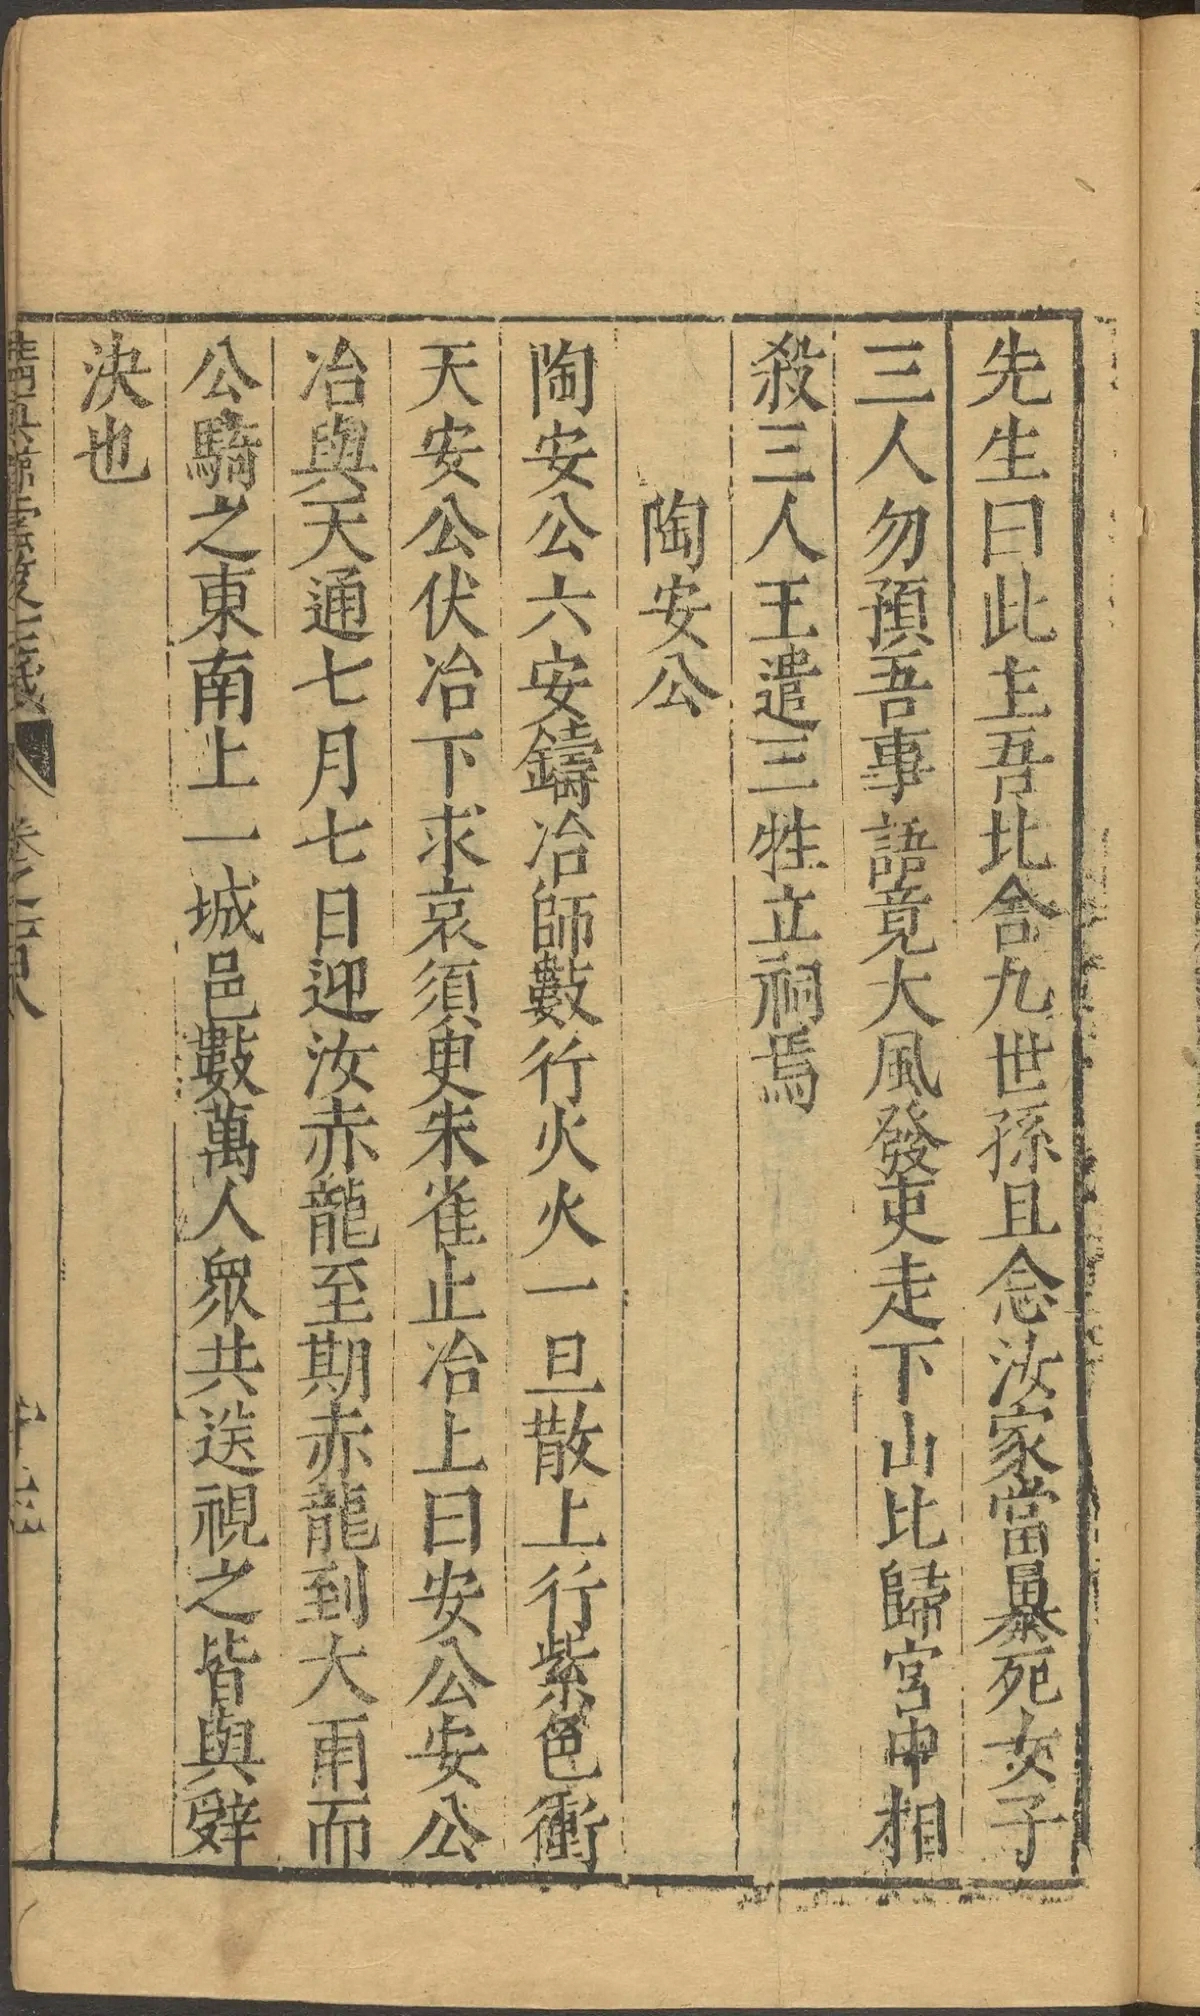 先生曰此主吾比舍九世孫且念汝家當暴死女子
三人勿預吾事語竟大風發吏走下山比歸宮中相
殺三人王遣三牲立祠焉
陶安公
陶安公六安鑄冶師數行火火一旦散上行紫色衝
天安公伏冶下求哀須臾朱雀止冶上曰安公安公
冶與天通七月七日迎汝赤龍至期赤龍到大雨而
公騎之東南上一城邑數萬人眾共送視之皆與辭
決也